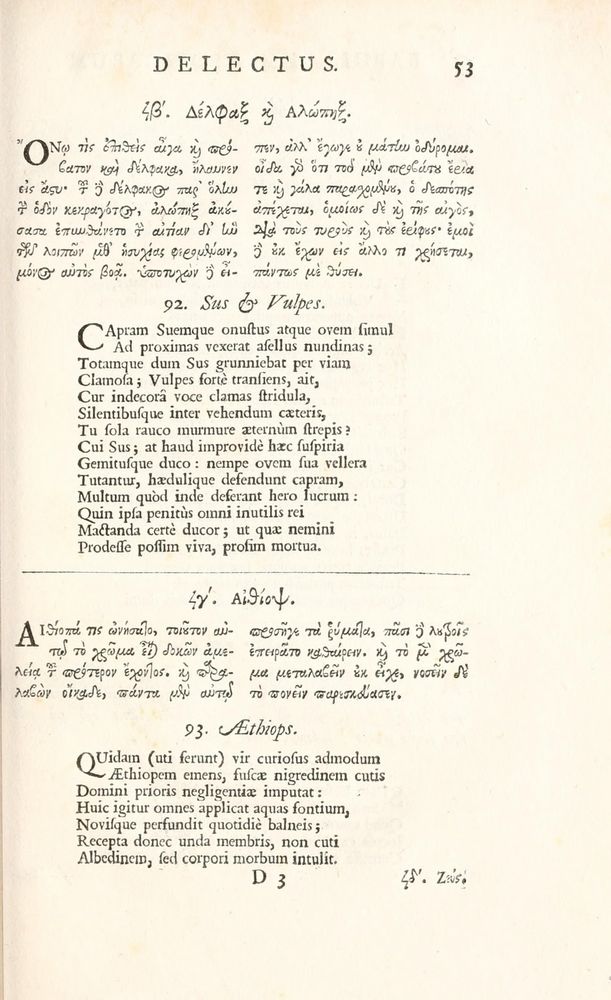 DELECTUS. 53
ϟβ΄. Δέλφαξ καὶ Ἀλώπηξ.
ὌΝῳ τὶς ἐπιθεὶς αἶγα καὶ πρό-
βατον καὶ δέλφακα, ἤλαυνεν
εἰς ἄϛυ· τοῦ δὲ δέλφακος παρ' ὅλην
τὴν ὁδὸν κεκραγότος, ἀλώπηξ ἀκύ-
σασα ἐπυνθάνετο τὴν αἰτίαν δι' ἣν
τῶν λοιπῶν μεθ' ἡσυχίας φερομένων,
μόνος αὐτὸς βοᾷ. ὑποτυχὼν δὲ εἶ-
πεν, ἀλλ' ἔγωγε ȣ μάτην ὀδύρομαι.
οἶδα γὰρ ὅτι τοῦ μὲν προβάτȣ ἔρια
τε καὶ γάλα παραχομένȣ, ὁ δεσπότης
ἀπέχεται, ὁμοίως δὲ καὶ τῆς αἰγὸς,
διὰ τοὺς τυροὺς καὶ τȣ̀ς ἐρίφȣς· ἐμοὶ
δὲ ȣκ ἔχων εἰς ἄλλο τι χρήσεται,
πάντως μὲ θύσει.
92. Sus & Vulpes.
CApram Suemque onustus atque ovem simul
Ad proximas vexerat asellus nundinas;
Totamque dum Sus grunniebat per viam
Clamosa; Vulpes fortè transiens, ait,
Cur indecorâ voce clamas stridula,
Silentibusque inter vehendum cæteris,
Tu sola rauco murmure æternùm strepis?
Cui Sus; at haud improvidè hæc suspiria
Gemitusque duco: nempe ovem sua vellera
Tutantur, hædulique defendunt capram,
Multum quòd inde deferant hero lucrum:
Quin ipsa penitùs omni inutilis rei
Mactanda certè ducor; ut quæ nemini
Prodesse possim viva, prosim mortua.
ϟγ΄. Αἰθίοψ.
ΑἸθίοπά τις ὠνήσατο, τοιῦτον αὐ-
τῷ τὸ χρῶμα εἶναι δοκῶν ἀμε-
λείᾳ τοῦ πρότερον ἔχοντος. καὶ παρα-
λαβὼν οἴκαδε, πάντα μὲν αὐτῷ
προσῆγε τὰ ῥύμματα, πᾶσι δὲ λυτροῖς
ἐπειρᾶτο καθαίρειν. καὶ τὸ μὲν χρῶ-
μα μεταλαβεῖν ȣκ εἶχε, νοσεῖν δὲ
τὸ πονεῖν παρεσκεύασεν.
93. Æthiops.
QUidam (uti ferunt) vir curiosus admodum
Æthiopem emens, fuscæ nigredinem cutis
Domini prioris negligentiæ imputat:
Huic igitur omnes applicat aquas fontium,
Novisque perfundit quotidiè balneis;
Recepta donec unda membris, non cuti
Albedinem, sed corpori morbum intulit.
D 3 ϟδ΄. Ζεύς.